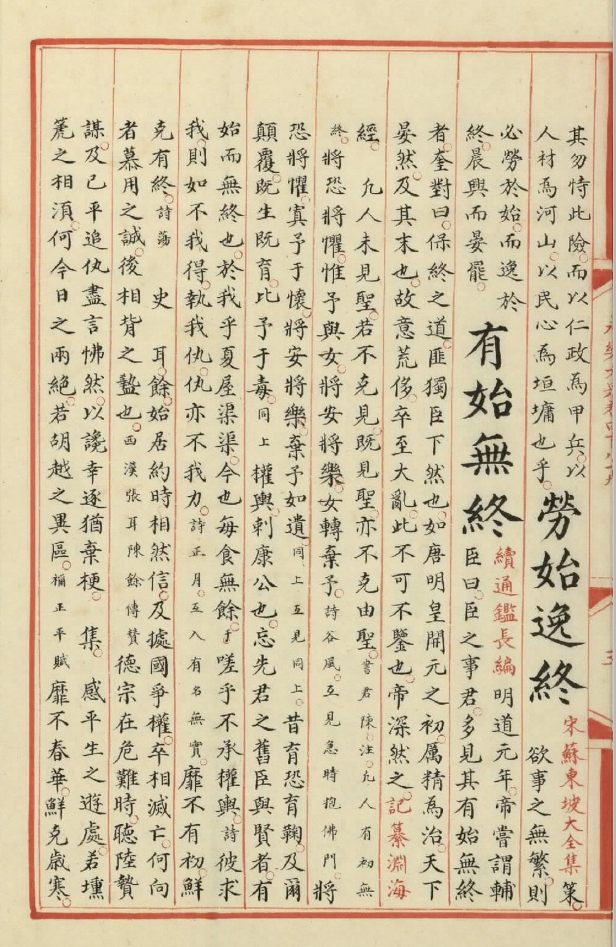 其勿恃此險而以仁政為甲兵以
人材為河山以民心為垣墉也乎
勞始逸終
宋蘇東坡大全集策
欲事之無繁則
必勞於始而逸於
終晨興而晏罷
有始無終
續通鑑長編明道元年帝嘗謂輔
臣曰臣之事君多見其有始無終
者奎對曰保終之道匪獨臣下然也如唐明皇開元之初厲精為治天下
晏然及其末也故意荒侈卒至大亂此不可不鑒也帝深然之記纂淵海
經 凡人未見聖若不克見既見聖亦不克由聖書君陳注凡人有初無
終將恐將懼惟予與女將安將樂女轉棄予詩谷風互見急時抱佛門將
恐將懼寘予于懷將安將樂棄予如遺同上互見同上昔育恐育鞠及爾
顛覆既生既育比予于毒同上 權輿刺康公也忘先君之舊臣與賢者有
始而無終也於我乎夏屋渠渠今也每食無餘于嗟乎不承權輿詩彼求
我則如不我得執我仇仇亦不我力詩正月互入有名無實靡不有初鮮
克有終詩蕩 史 耳餘始居約時相然信及據國爭權卒相滅亡何向
者慕用之誠後相背之盭也西漢張耳陳餘傳贊德宗在危難時聽陸贄
謀及已平追仇盡言怫然以讒幸逐猶棄梗 集 感平生之遊處若壎
篪之相湏何今日之兩絕若胡越之異區稱正平賦靡不春華鮮克歲寒